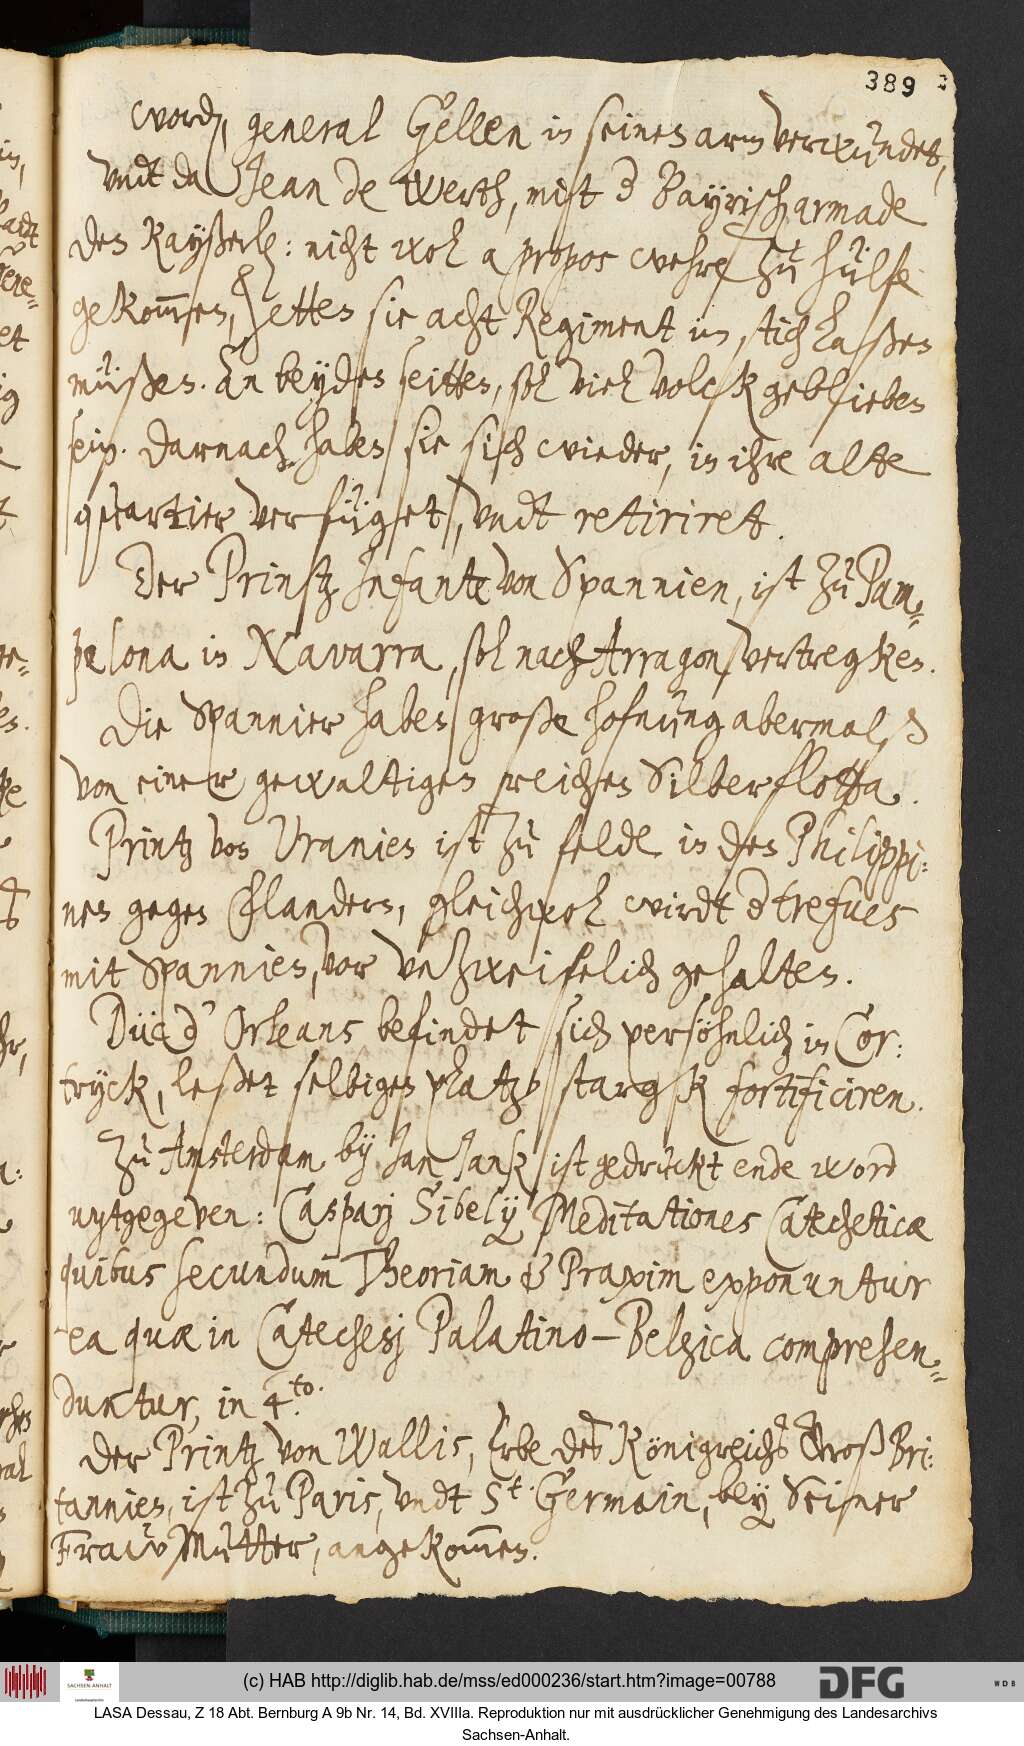 389
word, general Gellen in seinen arm verwundet,
undt da Jean de Werth, mitt d Bayrisch armade
den Kayßerl: nicht wol a propos wehre zu hülfe
gekommen, hetten sie acht Regiment im stich laßen
müßen. An beyden seitten, sol viel volck geblieben
sein. Darnach haben sie sich wieder, in ihre alte
quartier verfüget, undt retiriret.
Der Printz Infante von Spannien, ist zu Pam-
pelona in Navarra, sol nach Arragon, vertregken.
Die Spannier haben große hofnung abermalß
von einer gewaltigen reichen Silberflotta.
Printz von Uranien ist zu felde in den Philippi:
nen gegen Flandern, gleichwol wirdt d trefues
mit Spannien, vor unzweifelich gehalten.
Düc d' Orleans befindet sich persöhnlich in Cor:
tryck, leßet selbigen platz starck fortificiren.
Zu Amsterdam by Jan Janß ist gedruckt ende word
uytgegeven: Casparj Sibelij Meditationes Catecheticæ
quibus secundum Theoriam & Praxim exponuntur
ea quæ in Catechesj Palatino-Belgica comprehen-
duntur, in 4.to.
Der Printz von Wallis, Erbe des Königreichs Groß Bri:
tannien, ist zu Paris, undt St. Germain, bey Seiner
Fraw Mutter, angekommen.
(c) HAB http://diglib.hab.de/mss/ed000236/start.htm?image=00788
SACHSEN-ANHALT
DFG
WDB
LASA Dessau, Z 18 Abt. Bernburg A 9b Nr. 14, Bd. XVIIIa. Reproduktion nur mit ausdrücklicher Genehmigung des Landesarchivs
Sachsen-Anhalt.